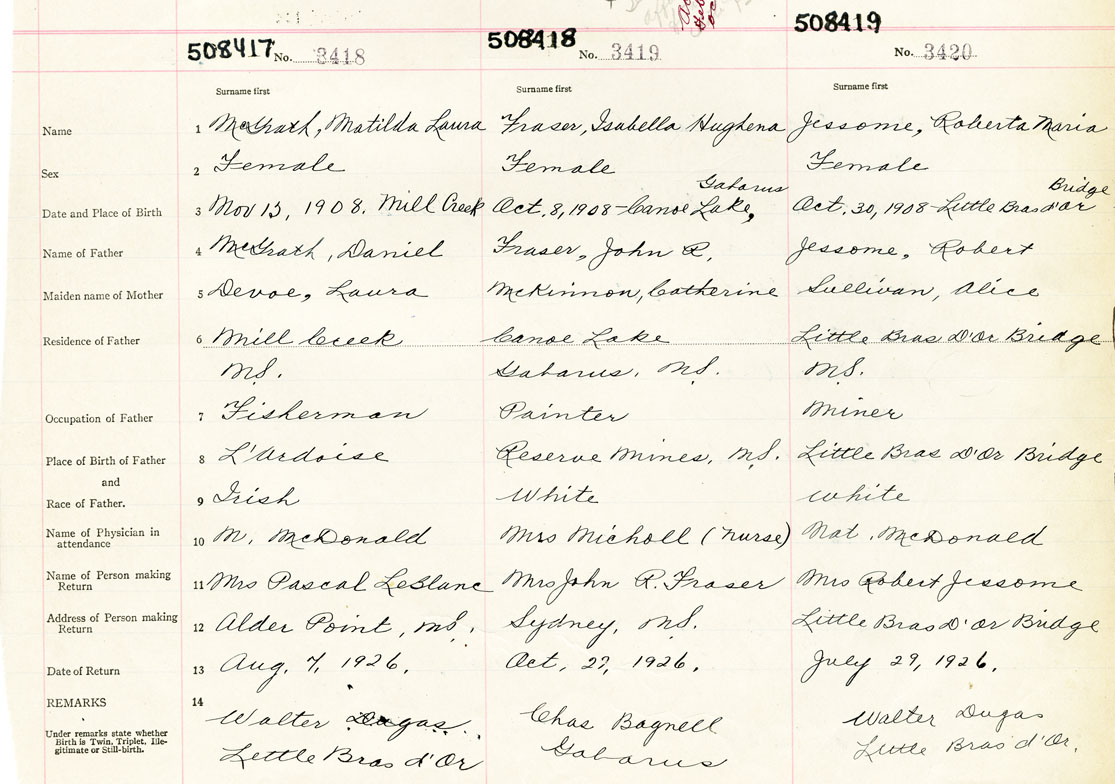 508417 508418 508419
No. 3418 No. 3419 No. 3420
Surname first Surname first Surname first
Name 1 McGrath, Matilda Laura Fraser, Isabella Hughena Jessome, Roberta Maria
Sex 2 Female Female Female
Gabarus Bridge
Date and Place of Birth 3 Nov 13, 1908. Mill Creek Oct. 8, 1908 - Canoe Lake, Oct. 30, 1908 - Little Bras d'Or
Name of Father 4 McGrath, Daniel Fraser, John R. Jessome, Robert
Maiden name of Mother 5 Devoe, Laura McKinnon, Catherine Sullivan, Alice
Residence of Father 6 Mill Creek Canoe Lake Little Bras D'Or Bridge
N.S. Gabarus, N.S. N.S.
Occupation of Father 7 Fisherman Painter Miner
Place of Birth of Father 8 L'Ardoise Reserve Mines, N.S. Little Bras D'Or Bridge
and
Race of Father. 9 Irish White white
Name of Physician in
attendance 10 M. McDonald Mrs Nicholl (nurse) Nat. McDonald
Name of Person making
Return 11 Mrs Pascal LeBlanc Mrs John R. Fraser Mrs Robert Jessome
Address of Person making
Return 12 Alder Point, N.S. Sydney, N.S. Little Bras D'Or Bridge
Date of Return 13 Aug. 7, 1926. Oct. 27, 1926. July 29, 1926.
REMARKS 14
Under remarks state whether
Birth is Twin, Triplet, Ille-
gitimate or Still-birth.
Walter Dugas Chas Bagnell Walter Dugas
Little Bras d'Or Gabarus Little Bras d'Or.